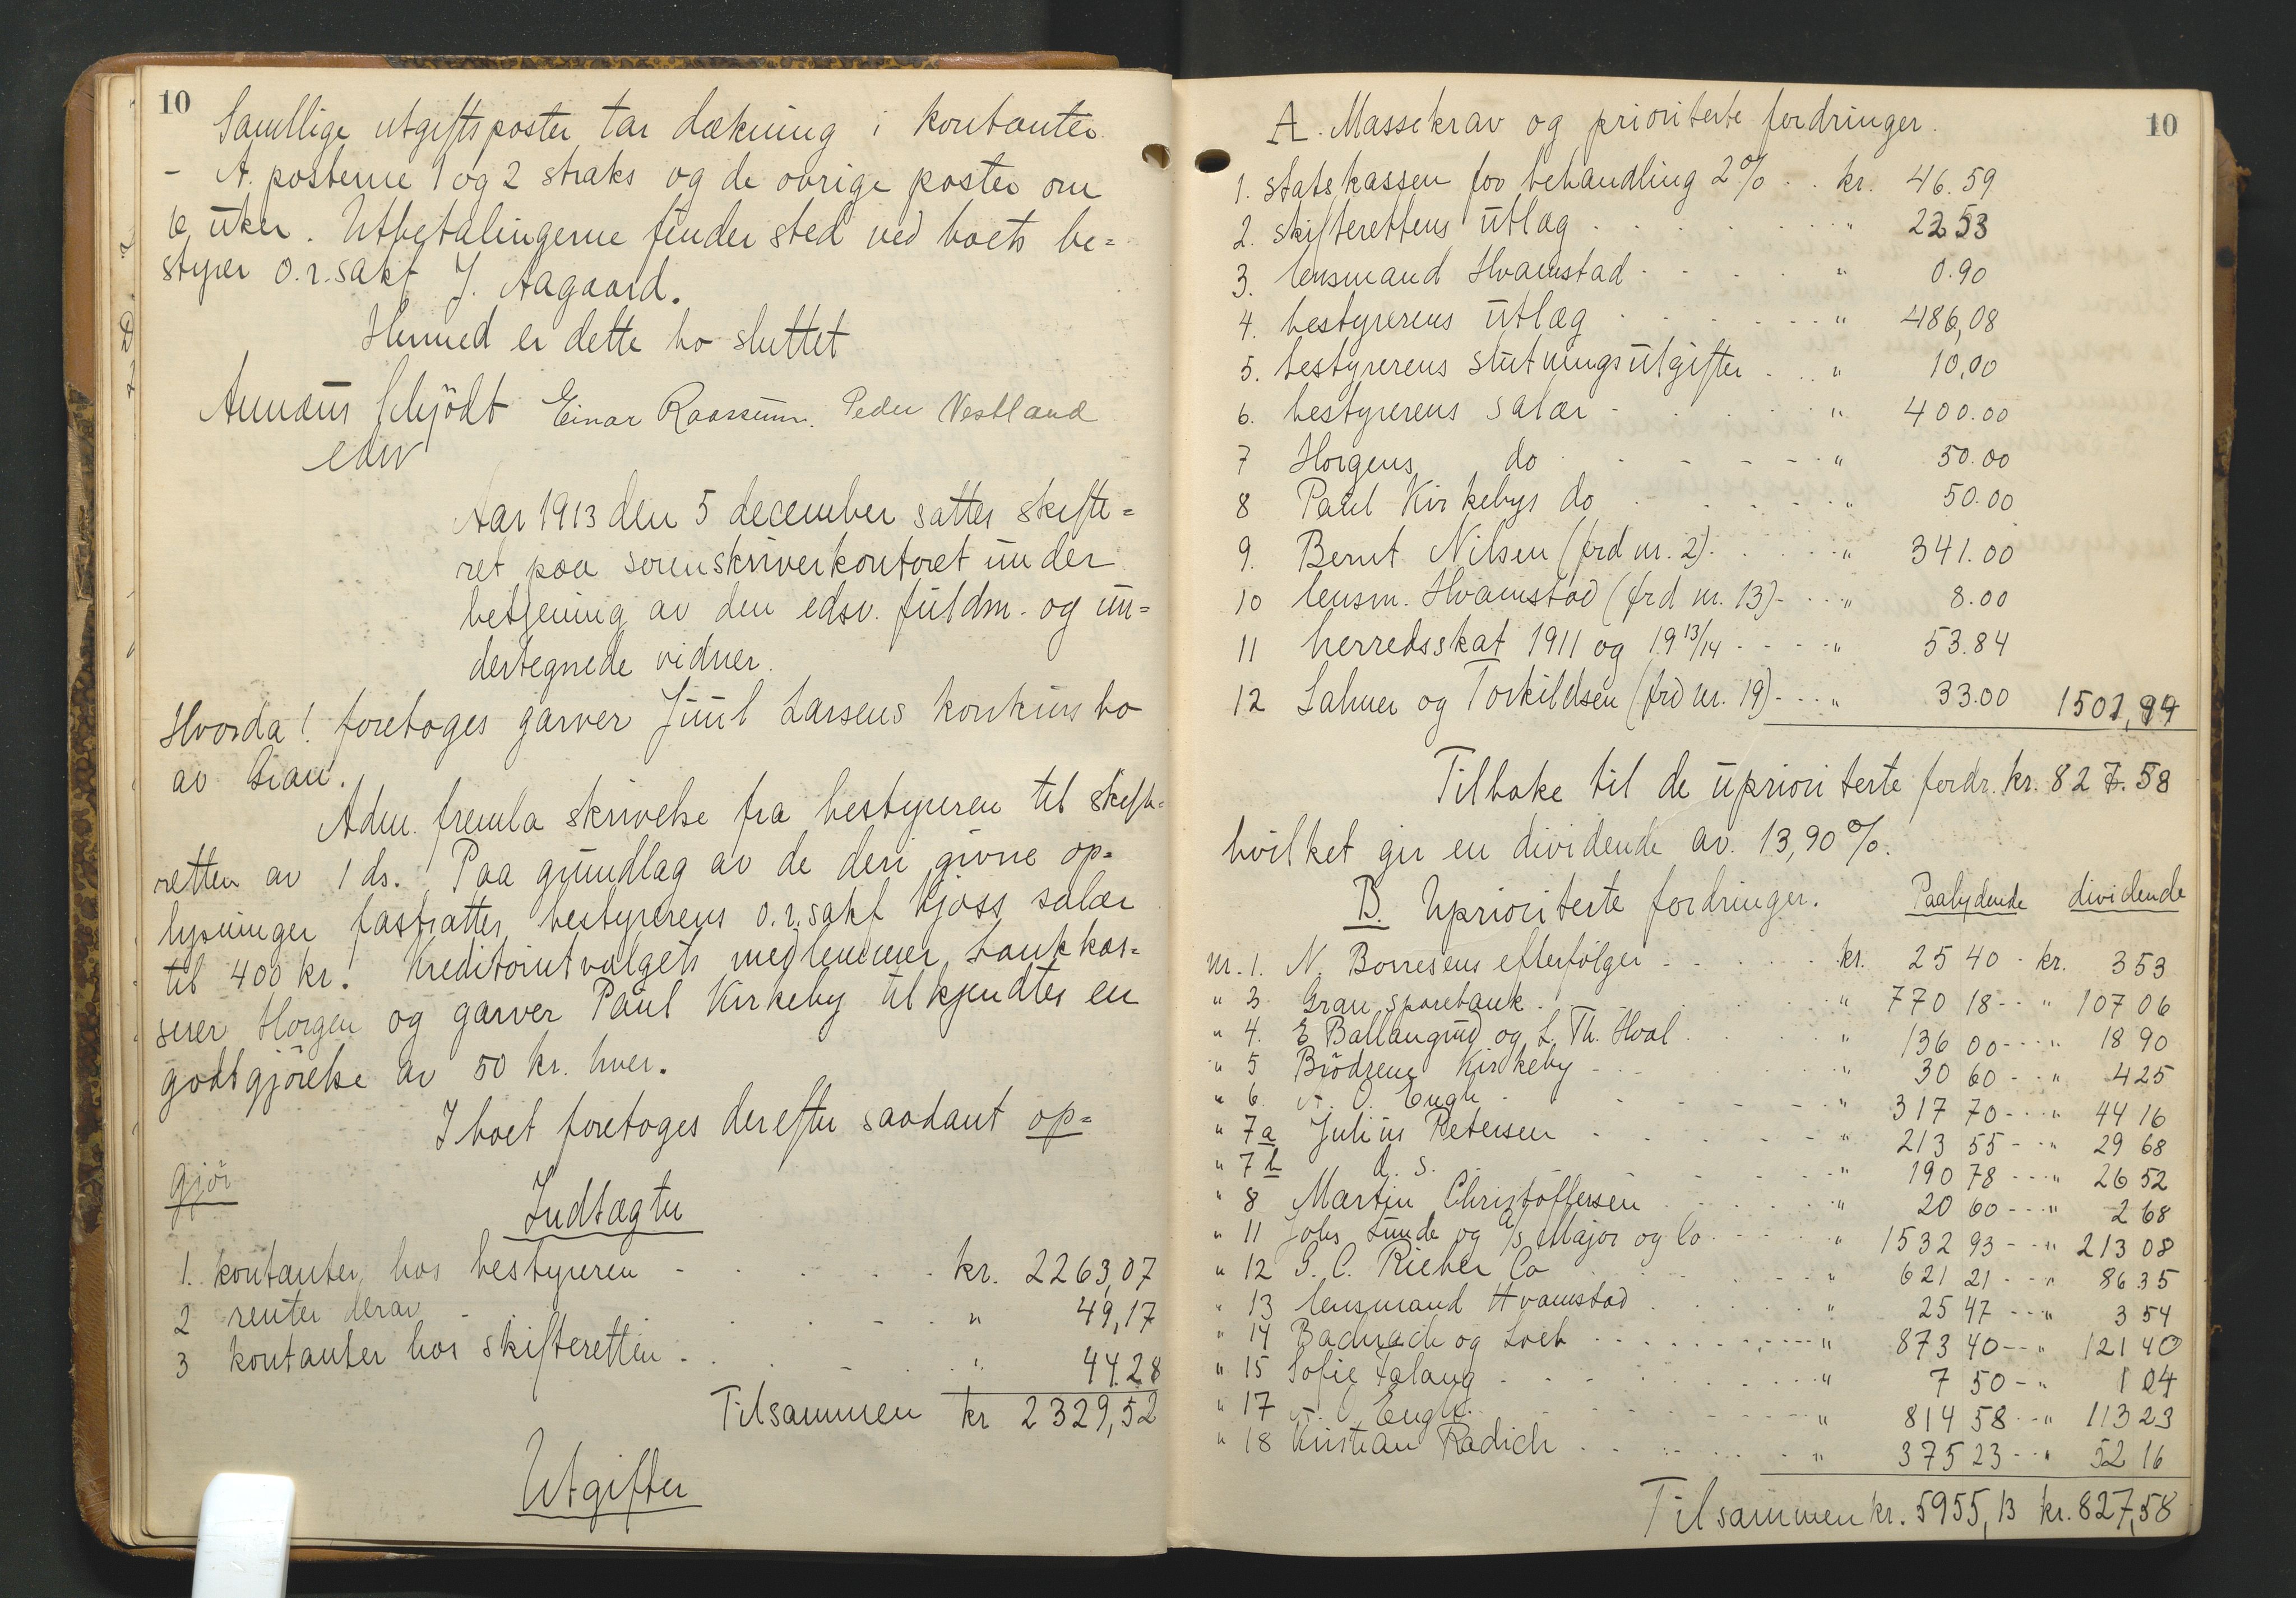 10
Samtlige utgiftsposter tar dækning i kontanter
- A. posterne 1 og 2 straks og de øvrige poster om
6 uker. Utbetalingerne finder sted ved boets be=
styrer o.r.sakf J. Aagaard.
Hermed er dette bo sluttet
Annæus Schjödt Einar Raassum. Peder Vestland
edsv
Aar 1913 den 5 december sattes skifte=
ret paa sorenskriverkontoret under
betjening av den edsv. fuldm. og un=
dertegnede vidner.
Hvorda! foretoges garver Juul Larsens konkursbo
av Gran.
Adm. fremla skrivelse fra bestyreren til skifte=
retten av 1 ds. Paa grundlag av de deri givne op=
lysninger fastsattes bestyrerens o.r.sakf Kjøss salær
til 400 kr. Kreditorutvalgets medlemmer, bankkas=
serer Horgen og garver Paul Kirkeby tilkjendtes en
godtgjörelse av 50 kr. hver.
I boet foretoges derefter saadant op=
gjör
Indtægter
1. kontanter hos bestyreren - - - - kr. 2263,07
2 renter derav - - - - " 49,17
3 kontanter hos skifteretten - - - - " 44.28
Tilsammen kr 2329,52
Utgifter
10
A. Massekrav og prioriterte fordringer.
1. statskassen for behandling 2% . . kr. 46.59
2. skifterettens utlæg . . . . " 22 53
3. lensmand Hvamstad - - - - " 0.90
4. bestyrerens utlæg - - - - " 486,08
5. bestyrerens slutningsutgifter - - " 10,00
6. bestyrerens salær - - - - " 400.00
7 Horgens do - - - - " 50.00
8 Paul Kirkebys do - - - - " 50.00
9. Bernt Nilsen (frd nr. 2) - - - - " 341.00
10 lensm. Hvamstad (frd nr. 13) - - - " 8.00
11 herredsskat 1911 og 1913/14 - - - - " 53.84
12 Salmer og Torkildsen (frd nr. 19) - - - " 33.00 1501,94
Tilbake til de uprioriterte fordr. kr. 827.58
hvilket gir en dividende av 13,90%.
B. Uprioriterte fordringer. Paalydende dividende
nr. 1. N. Borresens efterfölger - - - - kr. 25 40 - kr. 3 53
" 3 Gran sparebank - - - - " 770 18 - - " 107 06
" 4. E Ballangrud og L. Th. Hval - - - - " 136 00 - - " 18 90
" 5 Brödrene Kirkeby - - - - " 30 60 - - " 4 25
" 6. A. O. Engh - - - - " 317 70 - - " 44 16
" 7a Julius Petersen - - - - " 213 55 - - " 29 68
" 7b d. s. - - - - " 190 78 - - " 26 52
" 8 Martin Christoffersen - - - - " 20 60 - - " 2 68
" 11 Johs Lunde og A/s Major og Co - - - - " 1532 93 - - " 213 08
" 12 G. C. Rieber Co - - - - " 621 21 - - " 86 35
" 13 lensmand Hvamstad - - - - " 25 47 - - " 3 54
" 14 Bachrach og Loeb - - - - " 873 40 - - " 121 40
" 15 Sofie Falang - - - - " 7 50 - " 1 04
" 17 A. O. Engh. - - - - " 814 58 - - " 113 23
" 18 Kristian Radich - - - - " 375 23 - - " 52 16
Tilsammen kr. 5955,13 kr. 827,58